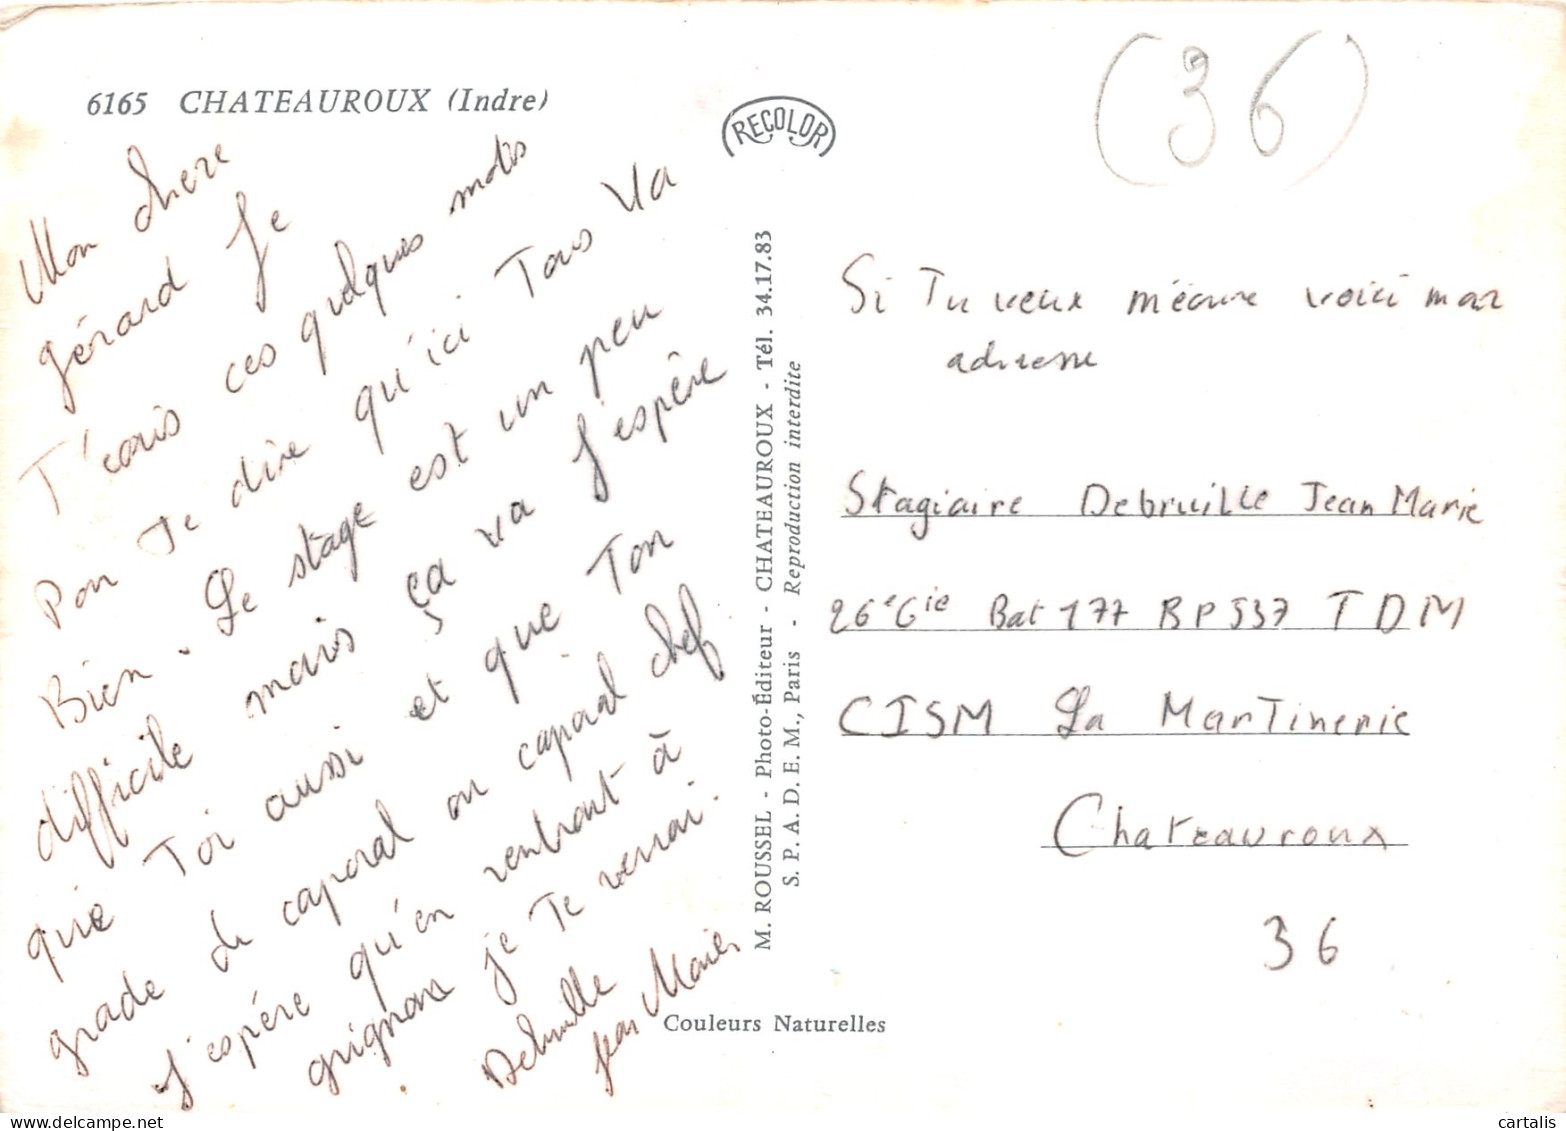 6165 CHATEAUROUX (Indre)
RECOLOR
(36)
Mon chere
gérard Je
T'écris ces quelques mots
Pour Te dire qu'ici Tous va
Bien. Le stage est un peu
difficile mais ça va J'espère
que Toi aussi et que Ton
grade de caporal ou caporal chef
J'espére qu'en rentrant à
grignons je Te verrai.
Debruille
Jean Marie
M. ROUSSEL - Photo-Éditeur - CHATEAUROUX - Tél. 34.17.83
S. P. A. D. E. M., Paris - Reproduction interdite
Couleurs Naturelles
Si Tu veux m'écrire voici mon
adresse
Stagiaire Debruille Jean Marie
26e Cie Bat 177 BP 537 T D M
CISM La Martinerie
Chateauroux
36
cartalis